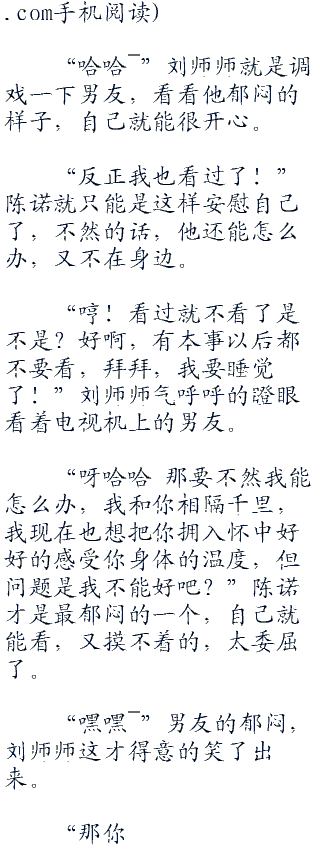 .com手机阅读)
“哈哈~” 刘师师就是调
戏一下男友，看看他郁闷的
样子，自己就能很开心。
“反正我也看过了！”
陈诺就只能是这样安慰自己
了，不然的话，他还能怎么
办，又不在身边。
“哼！看过就不看了是
不是？好啊，有本事以后都
不要看，拜拜，我要睡觉
了！” 刘师师气呼呼的瞪眼
看着电视机上的男友。
“呀哈哈 那要不然我能
怎么办，我和你相隔千里，
我现在也想把你拥入怀中好
好的感受你身体的温度，但
问题是我不能好吧？” 陈诺
才是最郁闷的一个，自己就
能看，又摸不着的，太委屈
了。
“嘿嘿~” 男友的郁闷，
刘师师这才得意的笑了出
来。
“那你